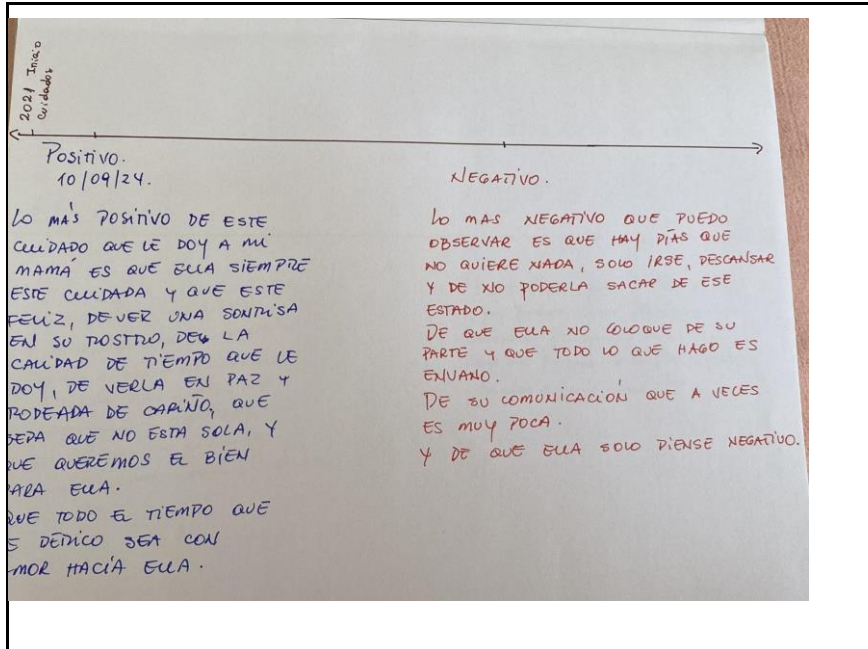 2021 Inicio
Cuidados
Positivo.
10/09/24.
LO MÁS POSITIVO DE ESTE
CUIDADO QUE LE DOY A MI
MAMÁ ES QUE ELLA SIEMPRE
ESTE CUIDADA Y QUE ESTE
FELIZ, DE VER UNA SONRISA
EN SU ROSTRO, DE LA
CALIDAD DE TIEMPO QUE LE
DOY, DE VERLA EN PAZ Y
RODEADA DE CARIÑO, QUE
SEPA QUE NO ESTA SOLA, Y
QUE QUEREMOS EL BIEN
PARA ELLA.
QUE TODO EL TIEMPO QUE
E DEDICO SEA CON
AMOR HACÍA ELLA.
NEGATIVO.
LO MAS NEGATIVO QUE PUEDO
OBSERVAR ES QUE HAY DÍAS QUE
NO QUIERE NADA, SOLO IRSE, DESCANSAR
Y DE NO PODERLA SACAR DE ESE
ESTADO.
DE QUE ELLA NO COLOQUE DE SU
PARTE Y QUE TODO LO QUE HAGO ES
ENVANO.
DE SU COMUNICACIÓN QUE A VECES
ES MUY POCA.
Y DE QUE ELLA SOLO PIENSE NEGATIVO.